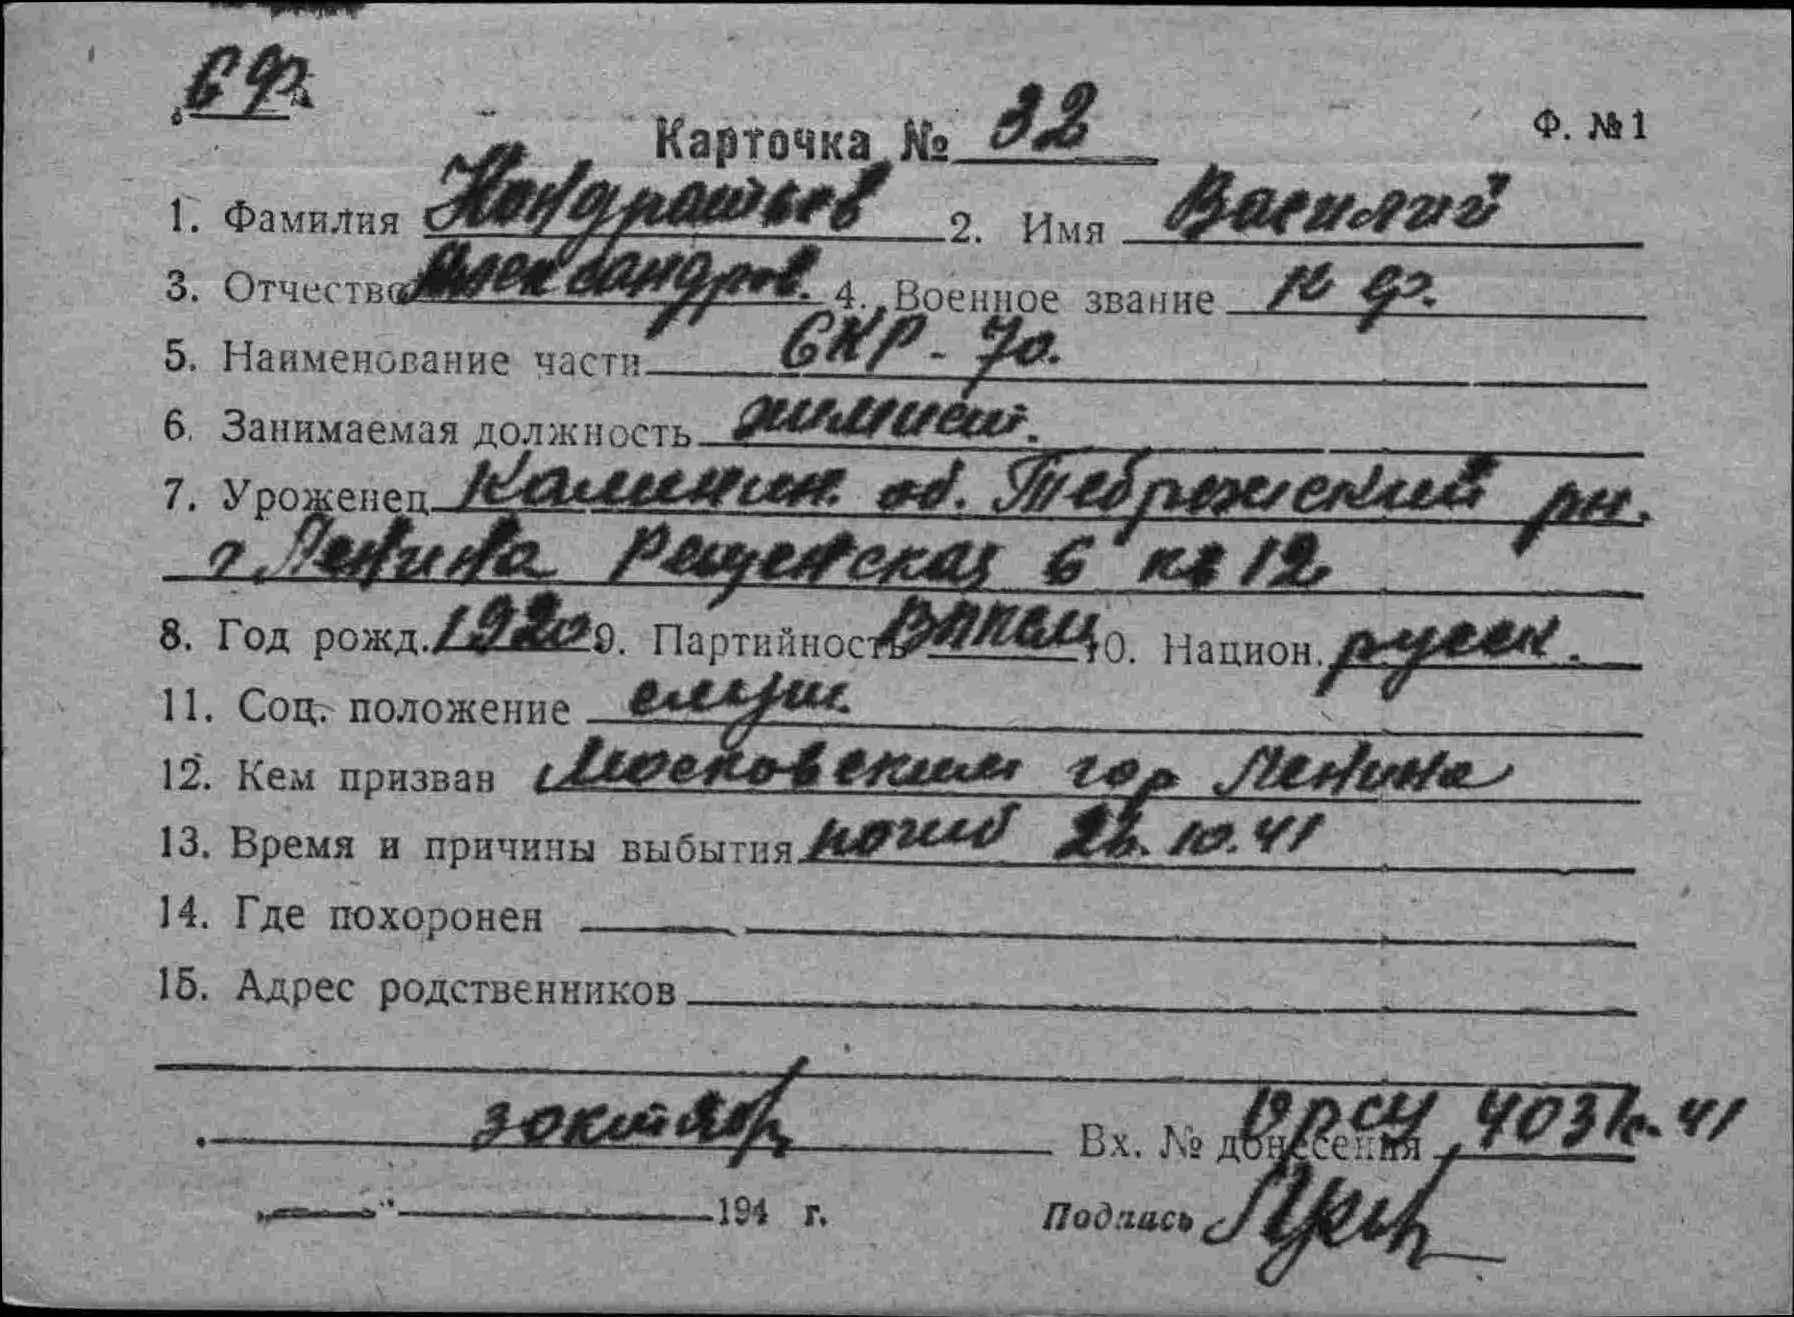 СФ.
Карточка № 32 Ф. №1
1. Фамилия Кондрашев 2. Имя Василий
3. Отчество Александров. 4. Военное звание к ф.
5. Наименование части СКР-70.
6. Занимаемая должность
7. Уроженец Калинин. об. рн.
г Ленина 6 кв 12
8. Год рожд. 1920 9. Партийность 10. Национ. русск.
11. Соц. положение служ.
12. Кем призван Московским гор Ленина
13. Время и причины выбытия погиб 10.41
14. Где похоронен
15. Адрес родственников
Вх. № донесения
„ “ 194 г. Подпись